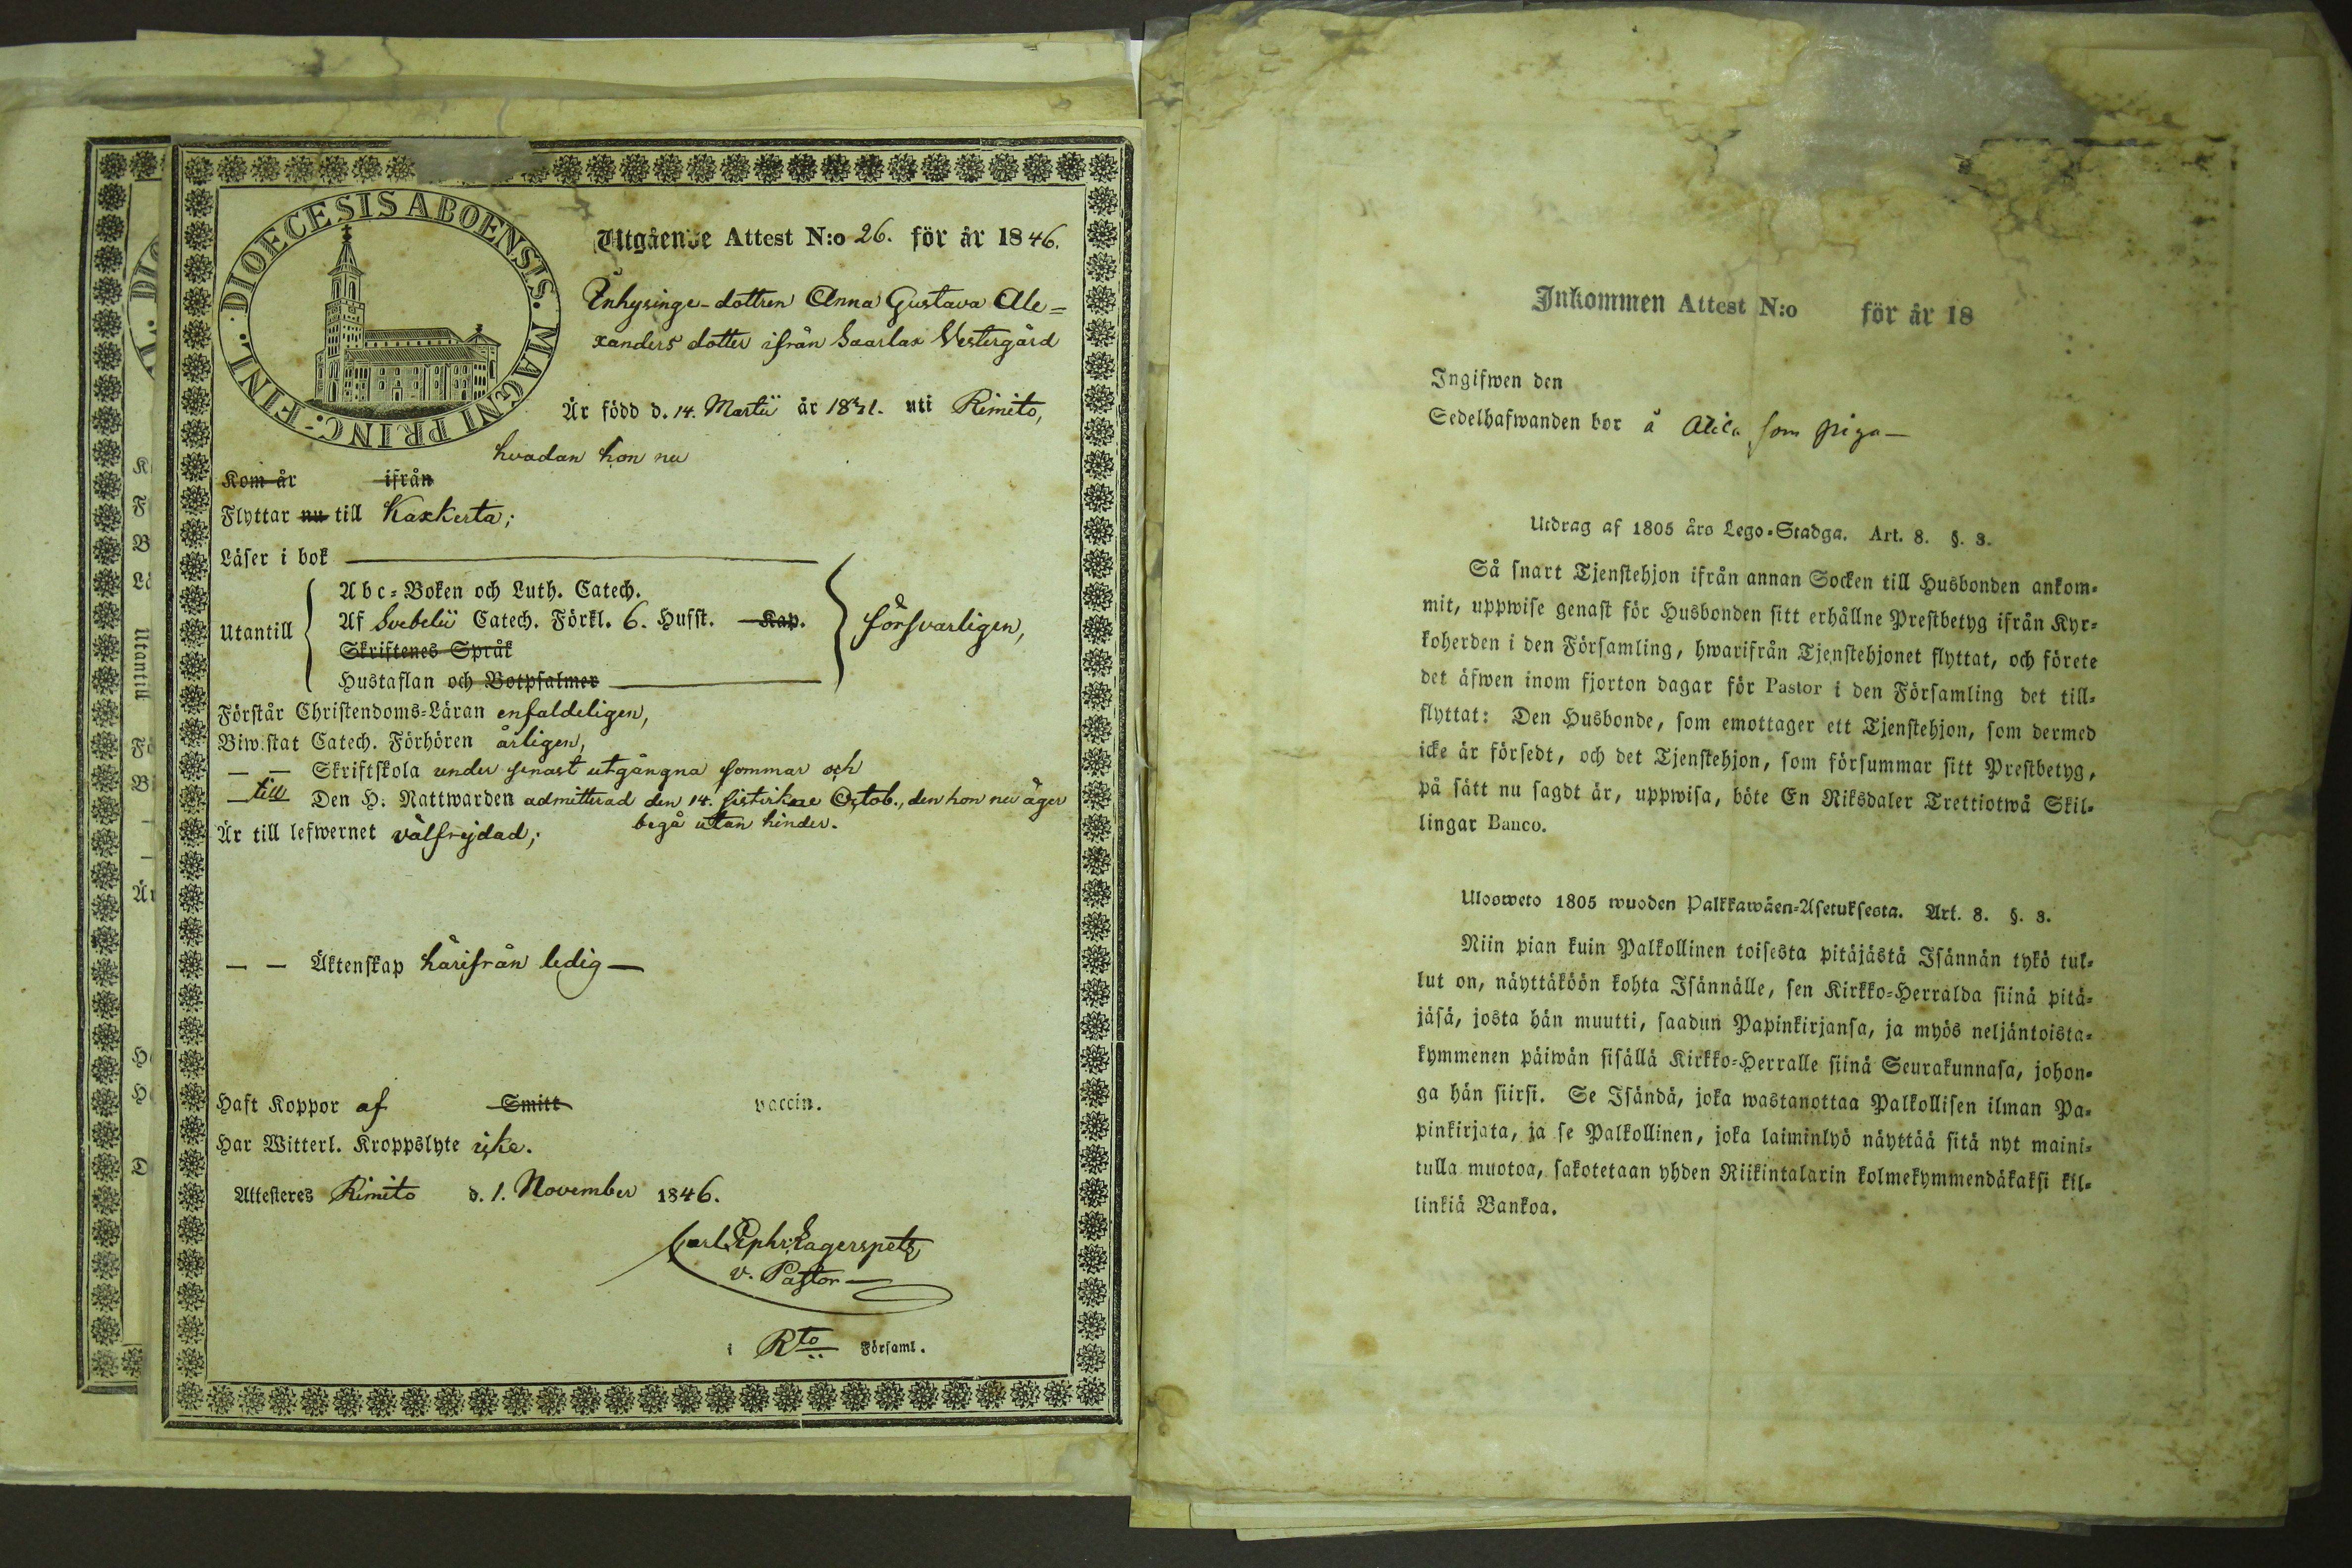 DIOECESIS ABOENSIS. MAGNI PRINC. FINL.
Utgående Attest N:o 26. för år 1846.
Inhysinge-dottren Anna Gustava Ale=
xanders dotter ifrån Saarlax Vestergård
Är född d. 14. Martii år 1831. uti Rimito,
hvadan hon nu
Kom år ifrån
Flyttar nu till Kaxkerta;
Läser i bok
Utantill
Abc=Boken och Luth. Catech.
Af Svebelii Catech. Förkl. 6. Husst. Kap.
Skriftenes Språk
Hustaflan och Botpsalmer
försvarligen,
Förstår Christendoms=Läran enfaldeligen,
Biwistat Catech. Förhören årligen,
— — Skriftskola under senast utgångna sommar och
till Den H. Nattwarden admitterad den 14. sistvikne Octob., den hon nu äger
begå utan hinder.
Är till lefwernet välfrejdad;
— — Äktenskap härifrån ledig —
Haft Koppor af Smitt vaccin.
Har Witterl. Kroppslyte icke.
Attesteres Rimito d. 1. November 1846.
Carl Ephr. Lagerspetz
v. Pastor
i Rto Församl.
Inkommen Attest N:o för år 18
Ingifwen den
Sedelhafwanden bor å Alila som piga —
Utdrag af 1805 års Lego-Stadga. Art. 8. §. 3.
Så snart Tjenstehjon ifrån annan Socken till Husbonden ankom=
mit, uppwise genast för Husbonden sitt erhållne Prestbetyg ifrån Kyr=
koherden i den Församling, hwarifrån Tjenstehjonet flyttat, och förete
det äfwen inom fjorton dagar för Pastor i den Församling det till=
flyttat: Den Husbonde, som emottager ett Tjenstehjon, som dermed
icke är försedt, och det Tjenstehjon, som försummar sitt Prestbetyg,
på sätt nu sagdt är, uppwisa, böte En Riksdaler Trettiotwå Skil=
lingar Banco.
Ulosweto 1805 wuoden Palkkawäen=Asetuksesta. Art. 8. §. 3.
Niin pian kuin Palkollinen toisesta pitäjästä Isännän tykö tul=
lut on, näyttäköön kohta Isännälle, sen Kirkko=Herralda siinä pitä=
jäsä, josta hän muutti, saadun Papinkirjansa, ja myös neljäntoista=
kymmenen päiwän sisällä Kirkko=Herralle siinä Seurakunnasa, johon=
ga hän siirsi. Se Isändä, joka wastanottaa Palkollisen ilman Pa=
pinkirjata, ja se Palkollinen, joka laiminlyö näyttää sitä nyt maini=
tulla muotoa, sakotetaan yhden Riikintalarin kolmekymmendäkaksi kil=
linkiä Bankoa.